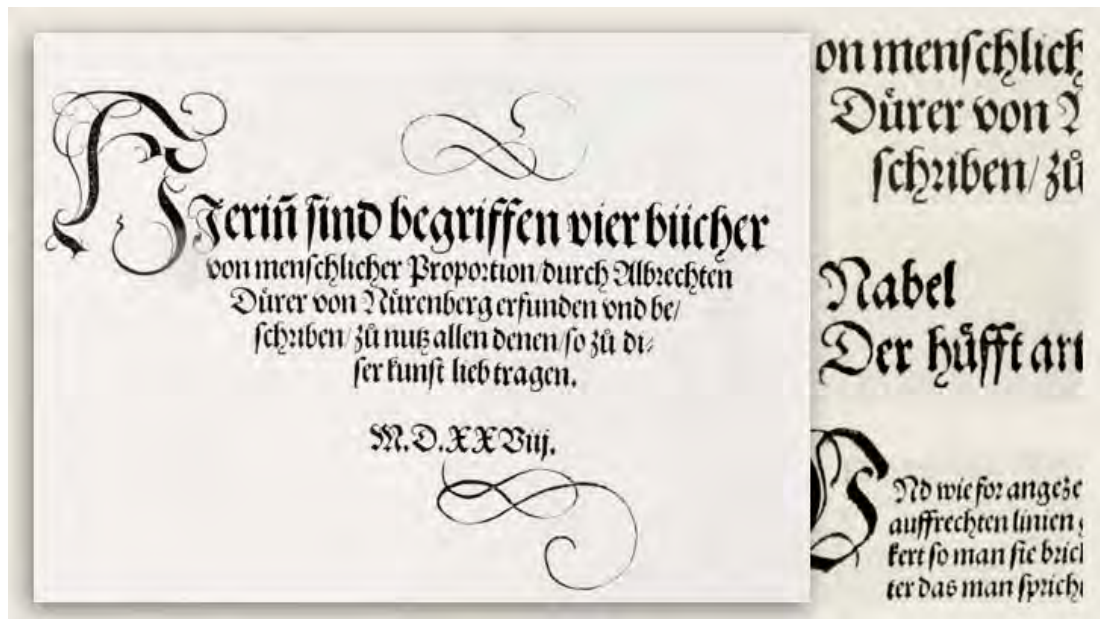 HJeriñ sind begriffen vier bücher
von menschlicher Proportion/durch Albrechten
Dürer von Nürenberg erfunden vnd be/
schriben/zů nutz allen denen/so zů di-
ser kunst lieb tragen.
M.D.XXViij.
on menschlich
Dürer von
schriben/zů
Nabel
Der hüfft art
VNd wie for angeze
auffrechten linien
kert so man sie bric
ter das man sprich